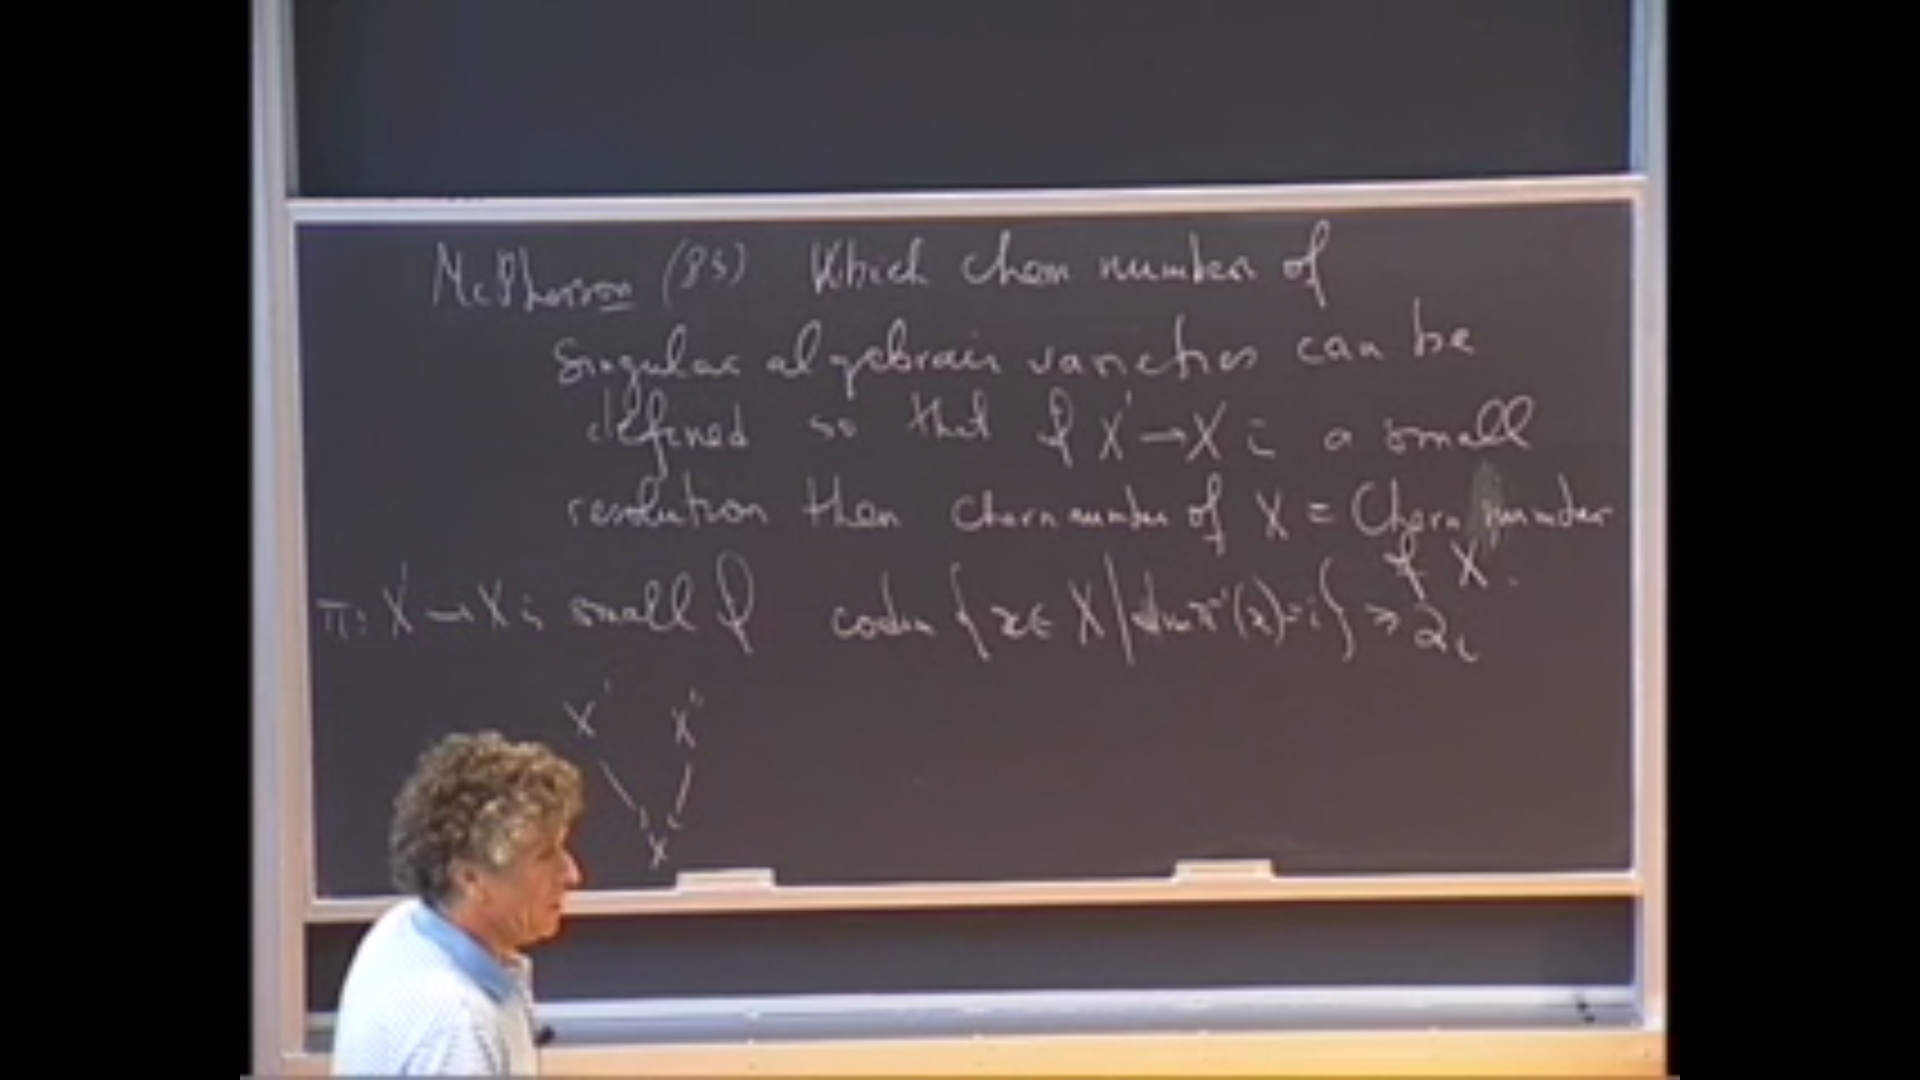 McPherson (85) Which chern number of
singular algebraic varieties can be
defined so that if X' → X is a small
resolution then Chern number of X = Chern number
of X'.
π: X' → X is small if codim {x ∈ X | dim π⁻¹(x) = i} > 2i
X' X''
X